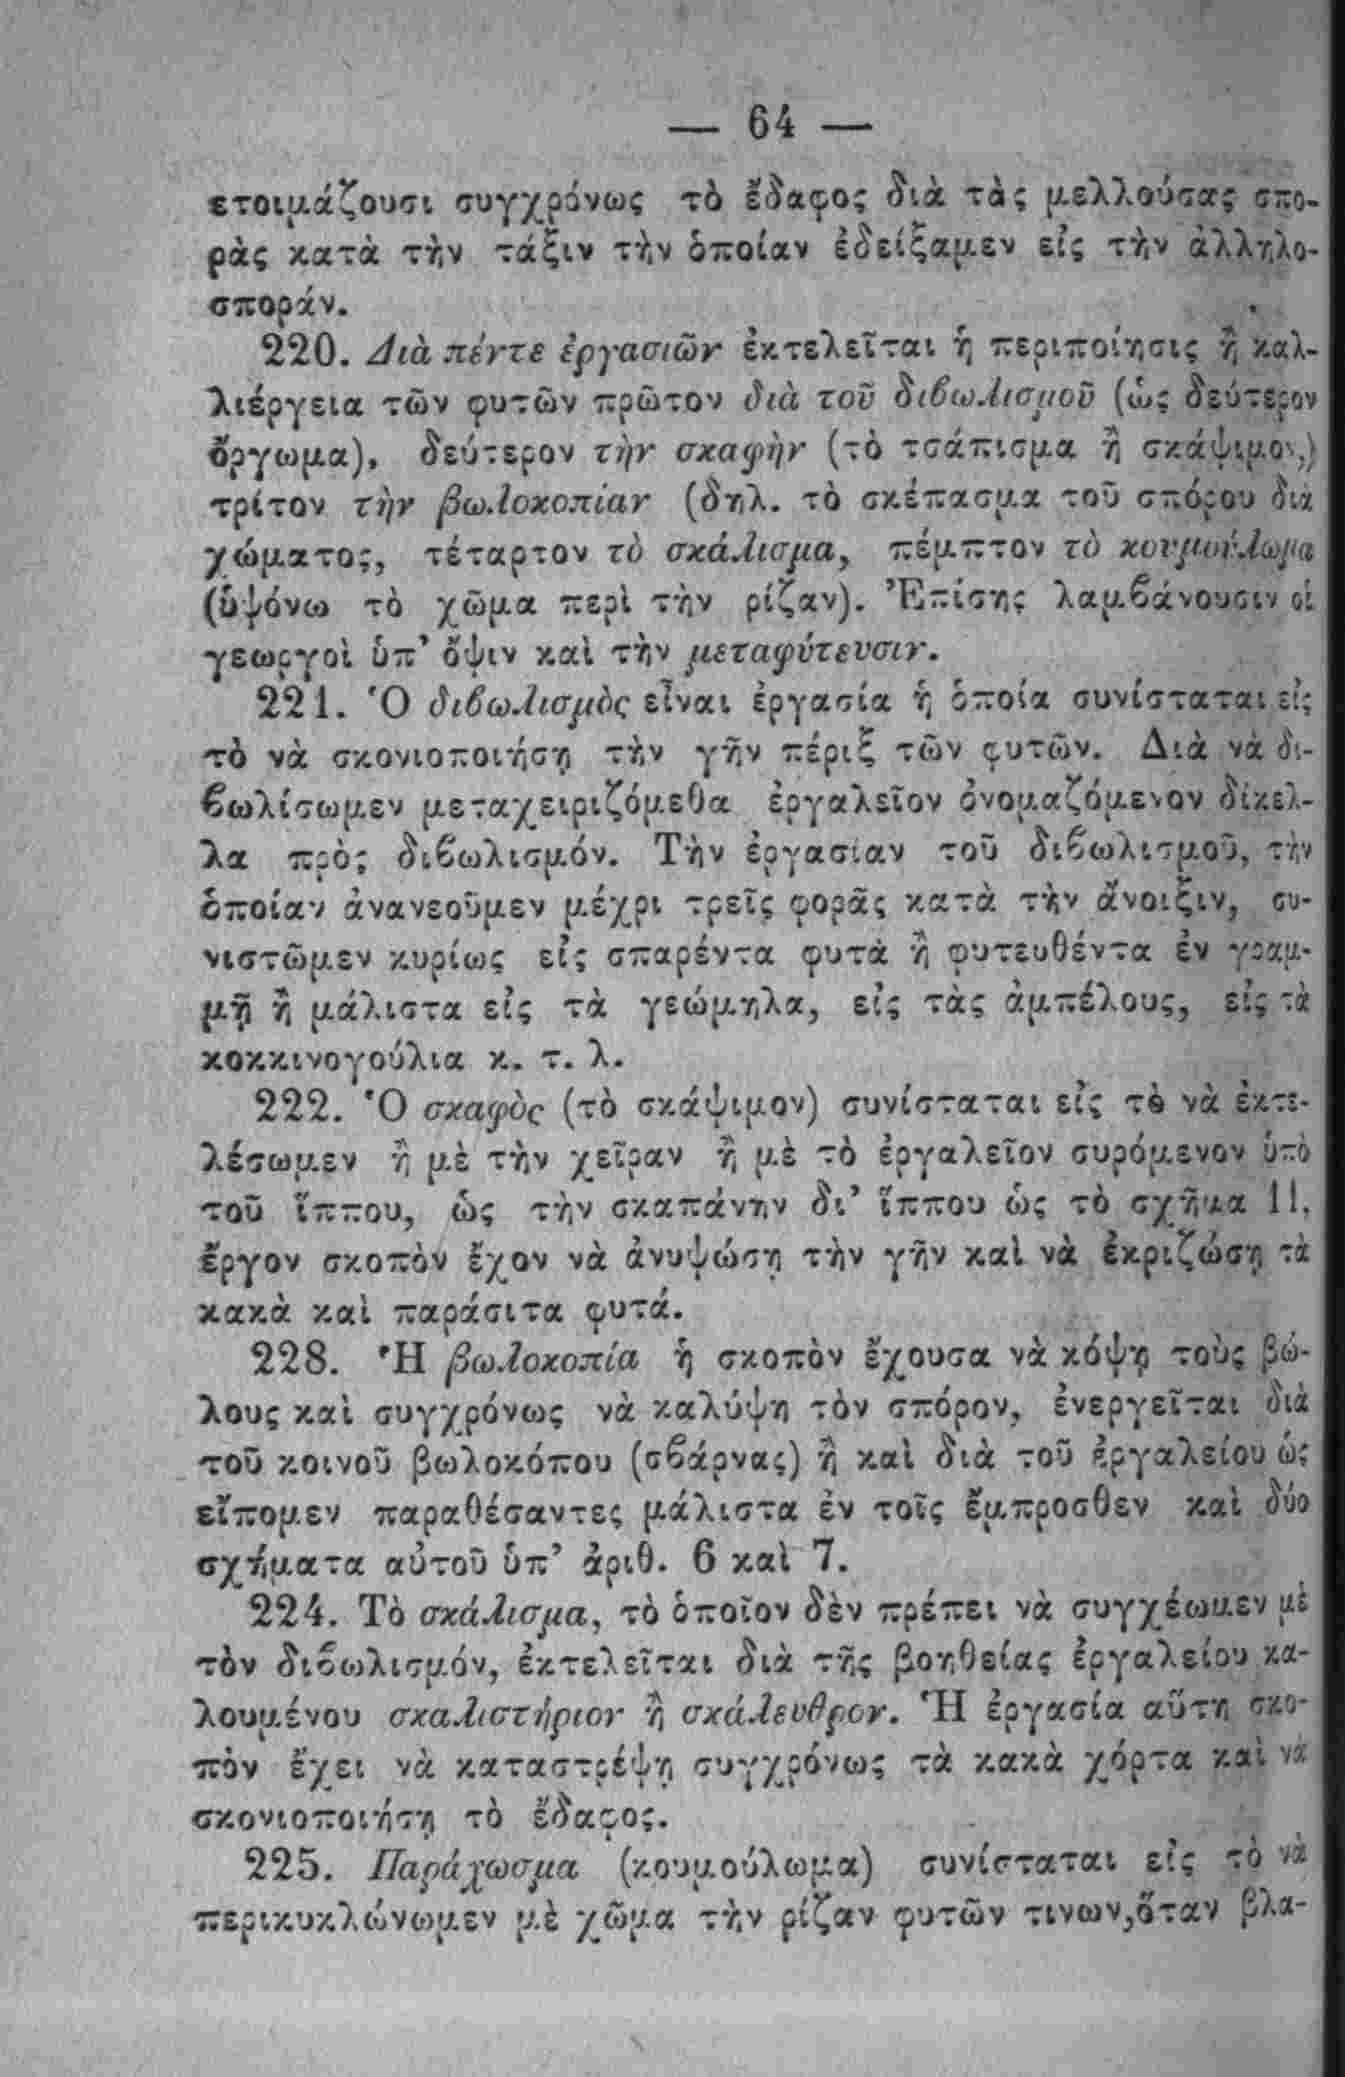 — 64 —
ετοιμάζουσι συγχρόνως τὸ ἔδαφος διὰ τὰς μελλούσας σπο-
ρὰς κατὰ τὴν τάξιν τὴν ὁποίαν ἐδείξαμεν εἰς τὴν ἀλληλο-
σποράν.
220. Διὰ πέντε ἐργασιῶν ἐκτελεῖται ἡ περιποίησις ἢ καλ-
λιέργεια τῶν φυτῶν πρῶτον διὰ τοῦ διβωλισμοῦ (ὡς δεύτερον
ὄργωμα), δεύτερον τὴν σκαφὴν (τὸ τσάπισμα ἢ σκάψιμον,)
τρίτον τὴν βωλοκοπίαν (δηλ. τὸ σκέπασμα τοῦ σπόρου διὰ
χώματος, τέταρτον τὸ σκάλισμα, πέμπτον τὸ κουμούλωμα
(ὑψόνω τὸ χῶμα περὶ τὴν ρίζαν). Ἐπίσης λαμβάνουσιν οἱ
γεωργοὶ ὑπ’ ὄψιν καὶ τὴν μεταφύτευσιν.
221. Ὁ διβωλισμὸς εἶναι ἐργασία ἡ ὁποία συνίσταται εἰς
τὸ νὰ σκονιοποιήσῃ τὴν γῆν πέριξ τῶν φυτῶν. Διὰ νὰ δι-
βωλίσωμεν μεταχειριζόμεθα ἐργαλεῖον ὀνομαζόμενον δίκελ-
λα πρὸς διβωλισμόν. Τὴν ἐργασίαν τοῦ διβωλισμοῦ, τὴν
ὁποίαν ἀνανεοῦμεν μέχρι τρεῖς φορᾶς κατὰ τὴν ἄνοιξιν, συ-
νιστῶμεν κυρίως εἰς σπαρέντα φυτὰ ἢ φυτευθέντα ἐν γραμ-
μῇ ἢ μάλιστα εἰς τὰ γεώμηλα, εἰς τὰς ἀμπέλους, εἰς τὰ
κοκκινογούλια κ. τ. λ.
222. Ὁ σκαφὸς (τὸ σκάψιμον) συνίσταται εἰς τὸ νὰ ἐκτε-
λέσωμεν ἢ μὲ τὴν χεῖραν ἢ μὲ τὸ ἐργαλεῖον συρόμενον ὑπὸ
τοῦ ἵππου, ὡς τὴν σκαπάνην δι’ ἵππου ὡς τὸ σχῆμα 11,
ἔργον σκοπὸν ἔχον νὰ ἀνυψώσῃ τὴν γῆν καὶ νὰ ἐκριζώσῃ τὰ
κακὰ καὶ παράσιτα φυτά.
228. Ἡ βωλοκοπία ἡ σκοπὸν ἔχουσα νὰ κόψῃ τοὺς βώ-
λους καὶ συγχρόνως νὰ καλύψῃ τὸν σπόρον, ἐνεργεῖται διὰ
τοῦ κοινοῦ βωλοκόπου (σβάρνας) ἢ καὶ διὰ τοῦ ἐργαλείου ὡς
εἴπομεν παραθέσαντες μάλιστα ἐν τοῖς ἔμπροσθεν καὶ δύο
σχήματα αὐτοῦ ὑπ’ ἀριθ. 6 καὶ 7.
224. Τὸ σκάλισμα, τὸ ὁποῖον δὲν πρέπει νὰ συγχέωμεν μὲ
τὸν διβωλισμόν, ἐκτελεῖται διὰ τῆς βοηθείας ἐργαλείου κα-
λουμένου σκαλιστήριον ἢ σκάλευθρον. Ἡ ἐργασία αὕτη σκο-
πὸν ἔχει νὰ καταστρέψῃ συγχρόνως τὰ κακὰ χόρτα καὶ νὰ
σκονιοποιήσῃ τὸ ἔδαφος.
225. Παράχωσμα (κουμούλωμα) συνίσταται εἰς τὸ νὰ
περικυκλώνωμεν μὲ χῶμα τὴν ρίζαν φυτῶν τινων,ὅταν βλα-